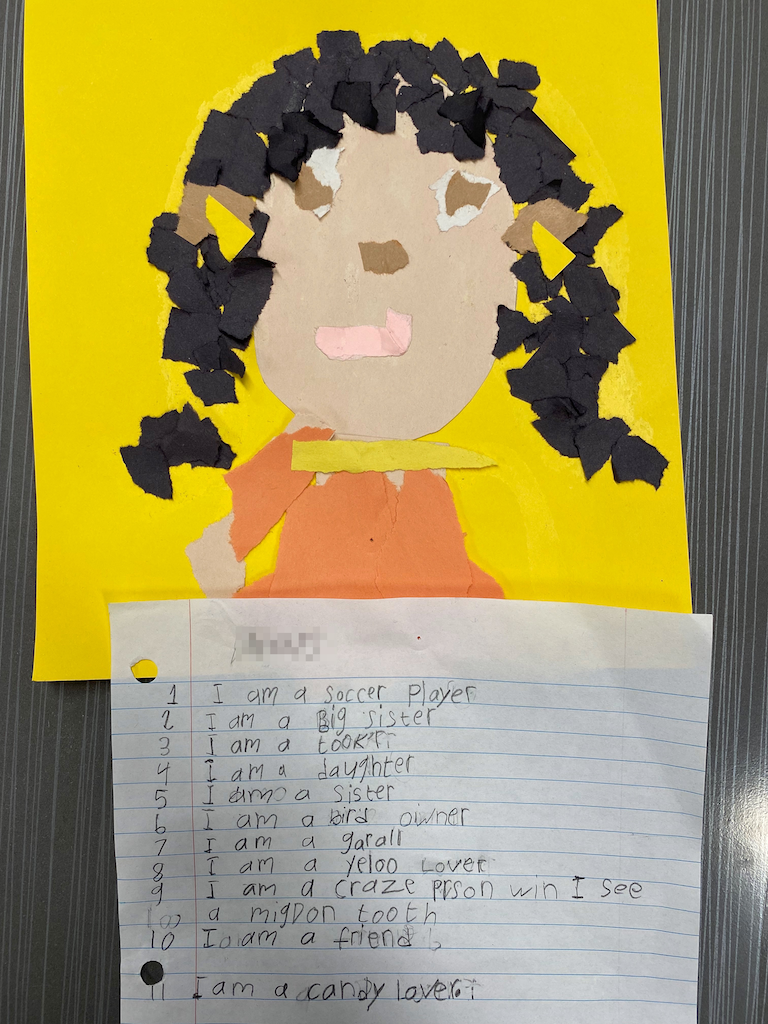 1 I am a soccer player
2 I am a Big sister
3 I am a
4 I am a daughter
5 I am a sister
6 I am a bird owner
7 I am a garall
8 I am a yeloo Lover
9 I am a craze prson win I see
a migDon tooth
10 I am a friend
11 I am a candy Lover